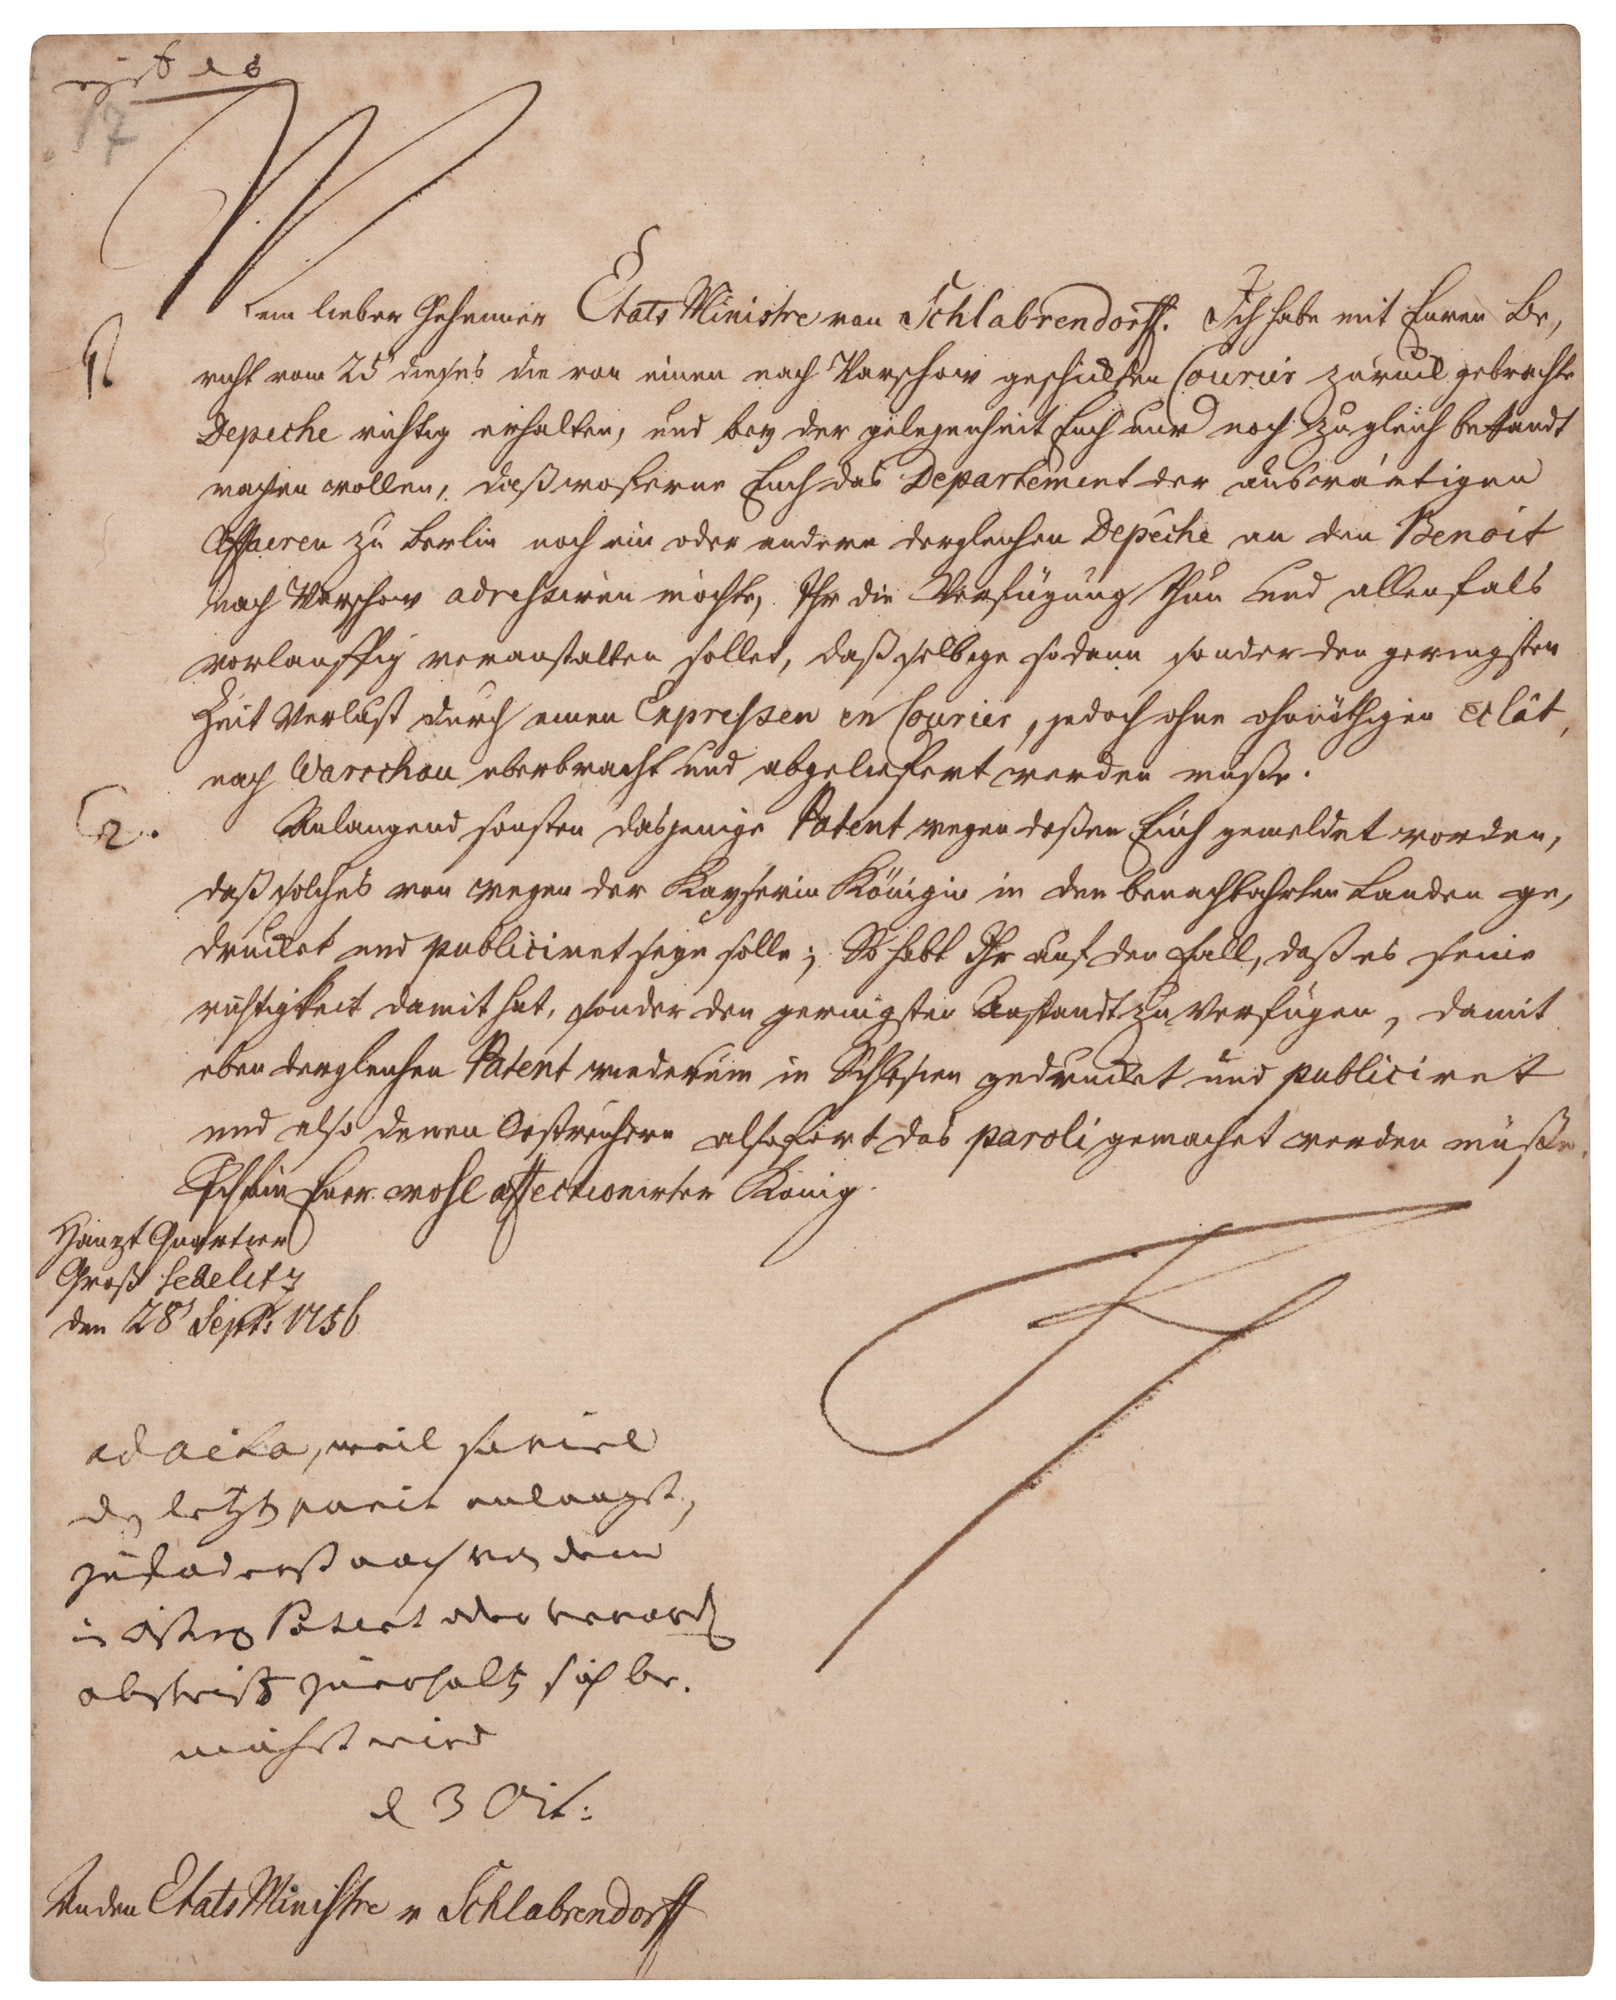 17
Mein lieber Geheimer Etats Ministre von Schlabrendorff. Ich habe mit Euren Be,
richt vom 25 dieses die von einen nach Warschow geschickten Courier zurück gebrachte
Depeche richtig erhalten, und bey der gelegenheit Euch nur noch zugleich bekandt
machen wollen, daß woferne Euch das Departement der auswärtigen
Affairen zu Berlin noch ein oder andere dergleichen Depeche an den Benoit
nach Warschow adressiren möchte, Ihr die Verfügung thun und allenfals
vorläuffig veranstalten sollet, daß selbige sodann sonder den geringsten
Zeit Verlust durch einen Expressen en Courier, jedoch ohne ohnnöthigen éclat,
nach Warschau überbracht und abgeliefert werden müße.
2. Anlangend sonsten dasjenige Patent wegen deßen Euch gemeldet worden,
daß solches von wegen der Kayserin Königin in den benachbahrten Landen ge,
drucket und publiciret seyn solle; So habt Ihr auf den Fall, daß es seine
richtigkeit damit hat, sonder den geringsten Anstandt zu verfügen, damit
eben dergleichen Patent wiederum in Schlesien gedrucket und publiciret
und also denen Oestreichern alsofort das paroli gemachet werden müße.
Ich bin Euer wohl affectionirter König.
Haupt Quartier
Groß Sedelitz
den 28t Sept: 1756
ad acta, weil so viel
letzt anlangt,
noch von dem
Patent oder
abschrifft zu erhalt sich be,
mühet wird
d 3 Oct:
An den Etats Ministre v Schlabrendorff